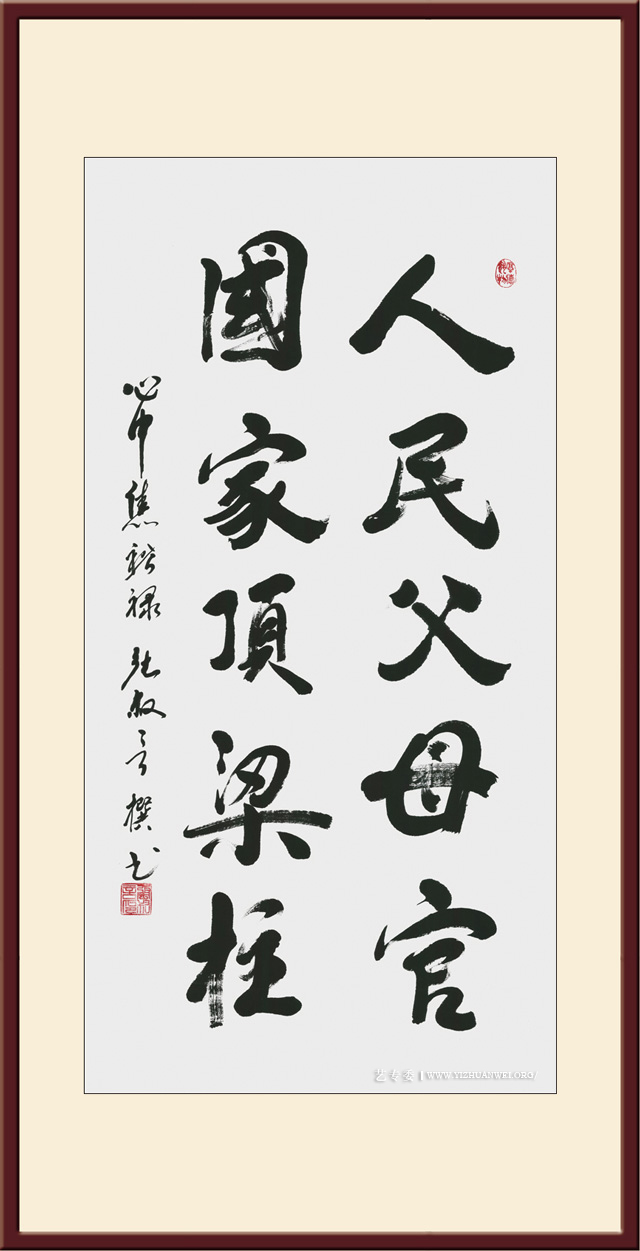 人民父母官
國家頂梁柱
心中焦裕禄 张叔言撰书
艺专委 WWW.YIZHUANWEI.ORG